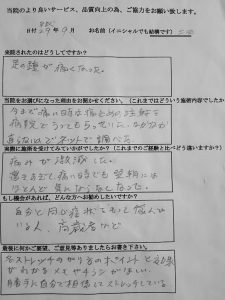 当院のより良いサービス、品質向上の為、ご協力をお願い致します。
日付 29年9月 お名前（イニシャルでも結構です）
来院されたのはどうしてですか？
足の踵が痛くなった。
当院をお選びになった理由をお聞かせください。（これまではどういう施術内容でしたか
今まで痛い時は痛み止めの注射を
病院でうってもらっていた。なかなか
直らないのでネットで調べた
実際に施術を受けてみていかがでしたか？（これまでのご経験と比べどう違いますか？）
痛みが激減した。
歩きすぎて痛い時でも翌朝には
ほとんど気にならなくなった。
もし機会があれば、どんな方へお勧めしたいですか？
自分と同じ症状でもって悩んで
いる人、高齢者など
最後に何かご要望、ご意見等ありましたらお書き下さい。
各ストレッチのかり方のポイントと効果
がわかるメモやチラシがほしい。
勝手に自分で想像してストレッチしている